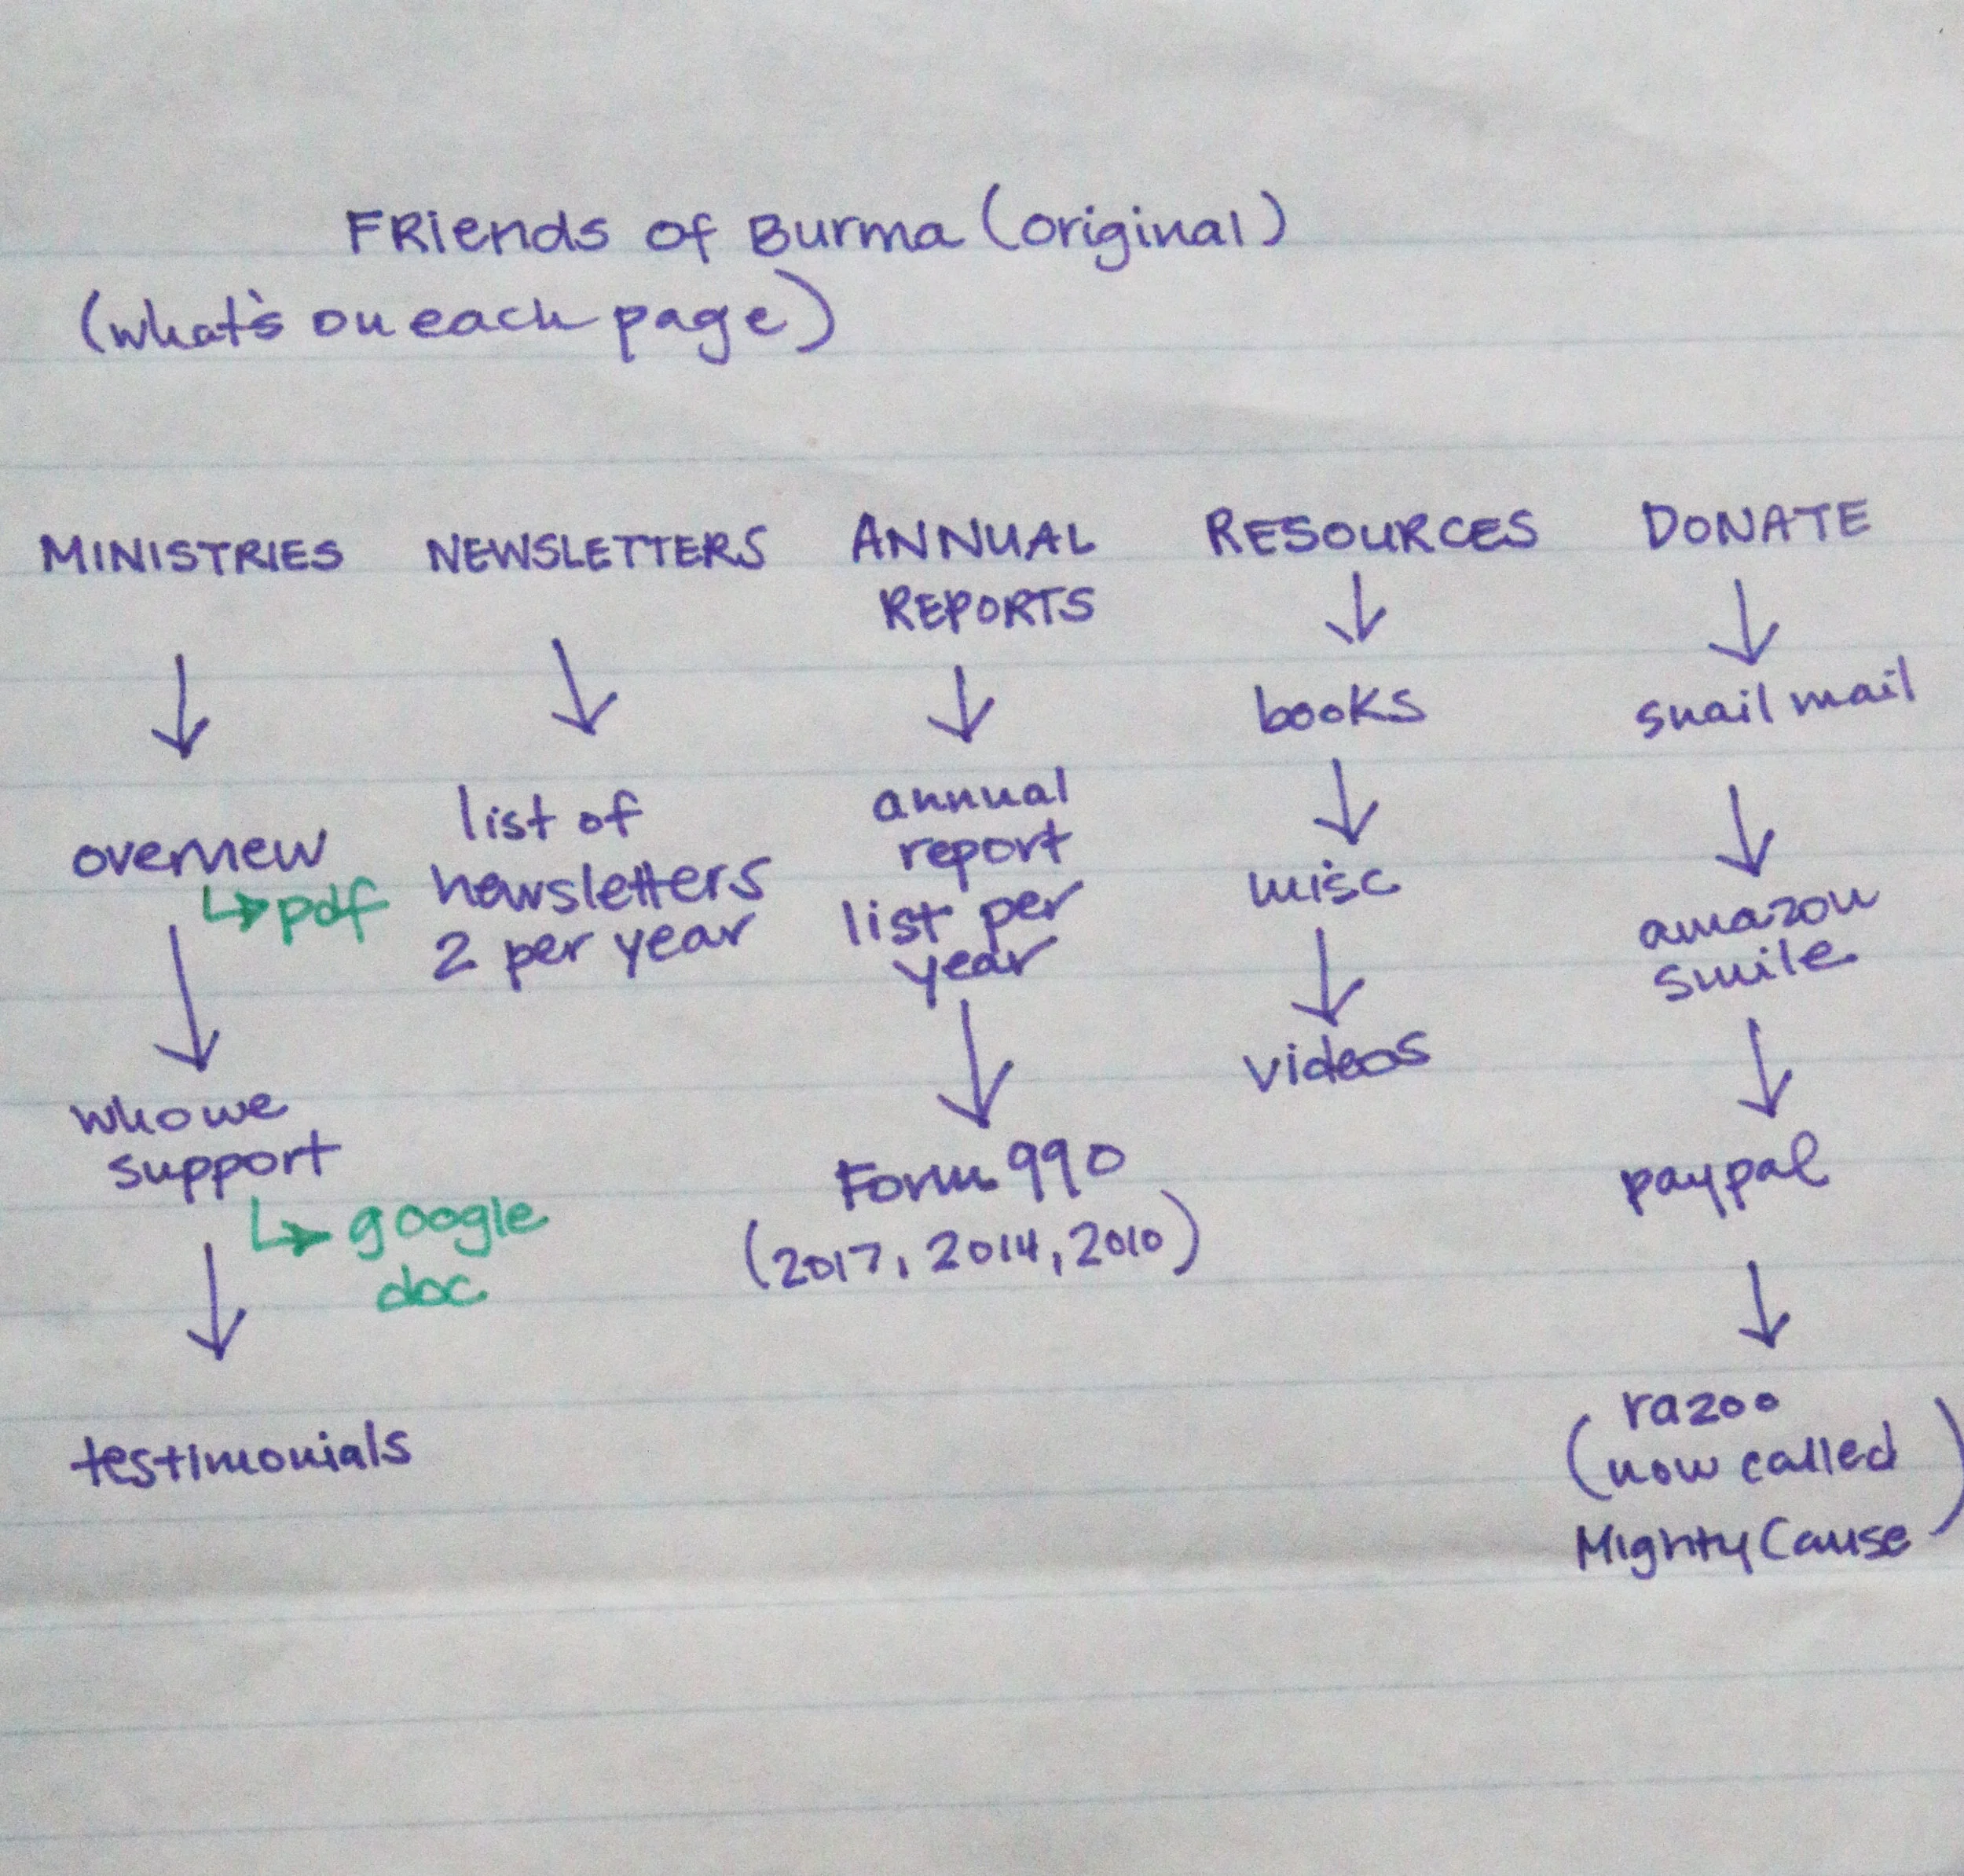 Friends of Burma (original)
(what's on each page)
MINISTRIES
overview
↳ pdf
who we
support
↳ google
doc
testimonials
NEWSLETTERS
list of
newsletters
2 per year
ANNUAL
REPORTS
annual
report
list per
year
Form 990
(2017, 2014, 2010)
RESOURCES
books
misc
videos
DONATE
snail mail
amazon
smile
paypal
razoo
(now called
Mighty Cause)